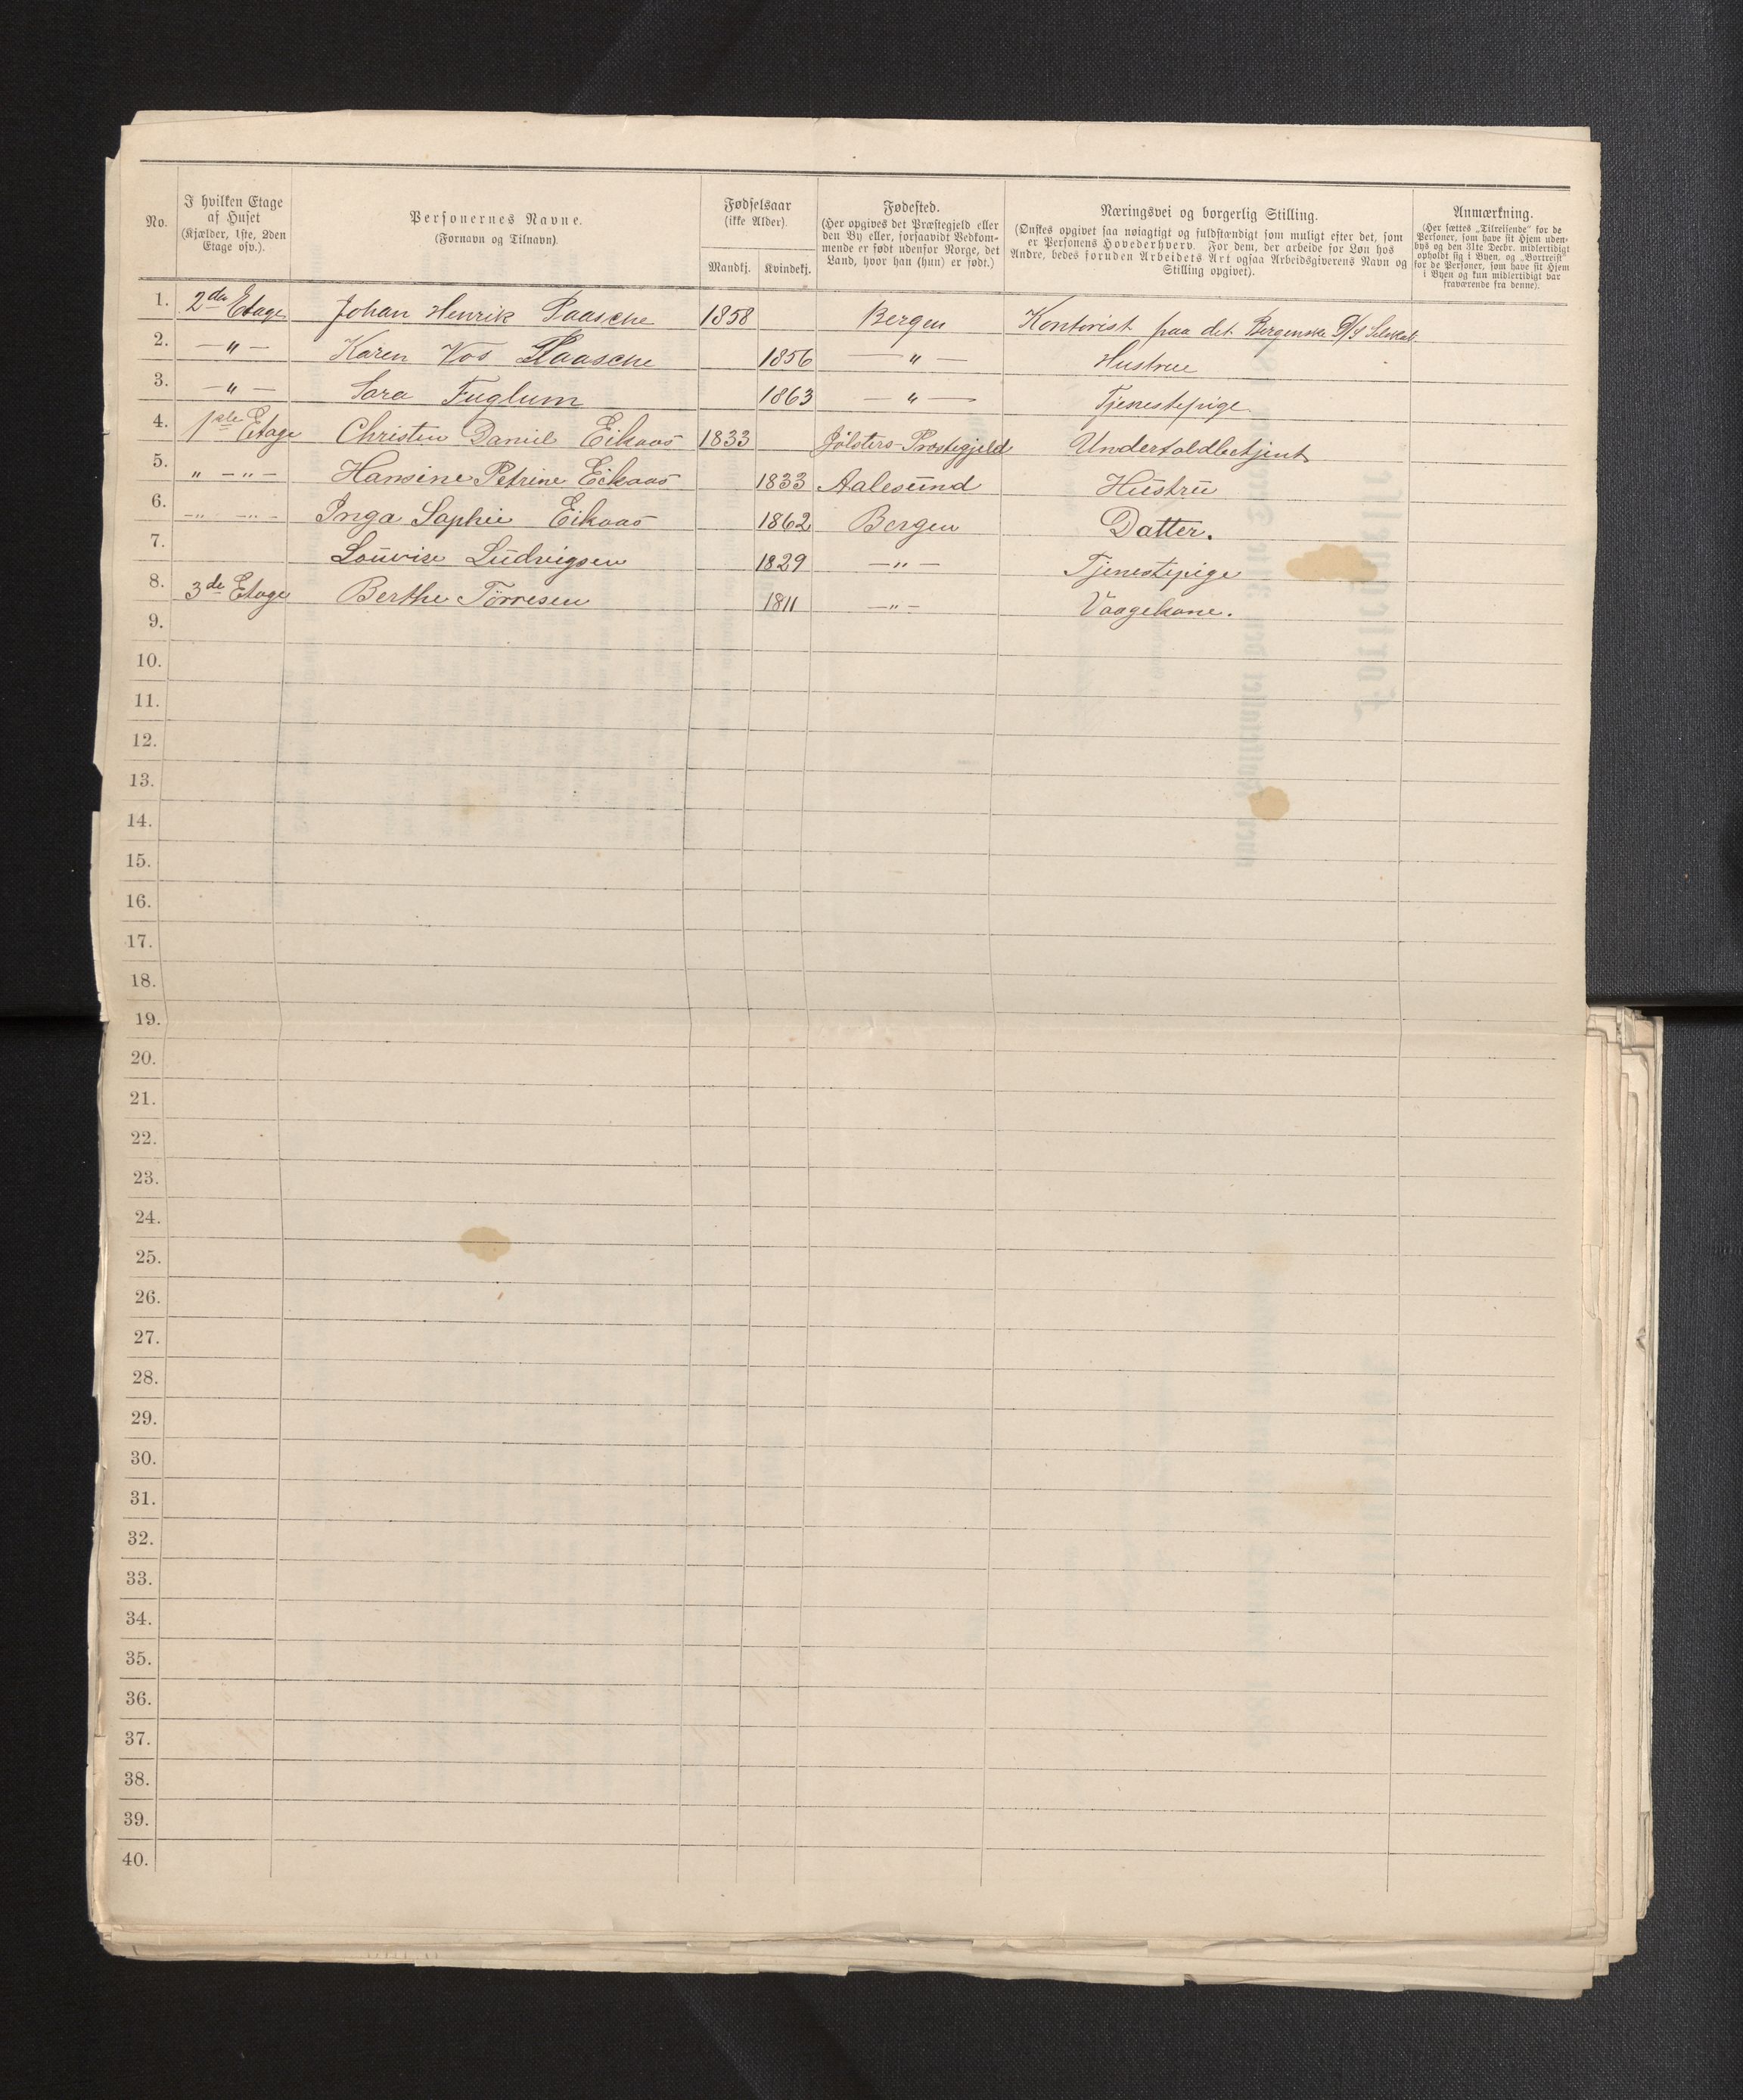 No.
I hvilken Etage af Huset (Kjælder, 1ste, 2den Etage osv.).
Personernes Navne. (Fornavn og Tilnavn).
Fødselsaar (ikke Alder). Mandkj. Kvindekj.
Fødested. (Her opgives det Præstegjeld eller den By eller, forsaavidt Vedkommende er født udenfor Norge, det Land, hvor han (hun) er født.)
Næringsvei og borgerlig Stilling. (Ønskes opgivet saa nøiagtigt og fuldstændigt som muligt efter det, som er Personens Hovederhverv. For dem, der arbeide for Løn hos Andre, bedes foruden Arbeidets Art ogsaa Arbeidsgiverens Navn og Stilling opgivet).
Anmærkning. (Her sættes „Tilreisende" for de Personer, som have sit Hjem udenbys og den 31te Decbr. midlertidigt opholdt sig i Byen, og „Bortreist" for de Personer, som have sit Hjem i Byen og kun midlertidigt var fraværende fra denne).
1. 2den Etage Johan Henrik Paasche 1858 Bergen Kontorist paa det Bergenske D/S Selskab
2. — " — Karen Vos Paasche 1856 — " — Hustrue
3. — " — Sara Fuglum 1863 — " — Tjenestepige
4. 1ste Etage Christen Daniel Eikaas 1833 Jölsters Præstegjeld Undertoldbetjent
5. " — " — Hansine Petrine Eikaas 1833 Aalesund Hustru
6. — " — " — Inga Saphie Eikaas 1862 Bergen Datter.
7. Louvise Ludvigsen 1829 — " — Tjenestepige
8. 3de Etage Berthe Törresen 1811 — " — Vaagekone.
9.
10.
11.
12.
13.
14.
15.
16.
17.
18.
19.
20.
21.
22.
23.
24.
25.
26.
27.
28.
29.
30.
31.
32.
33.
34.
35.
36.
37.
38.
39.
40.